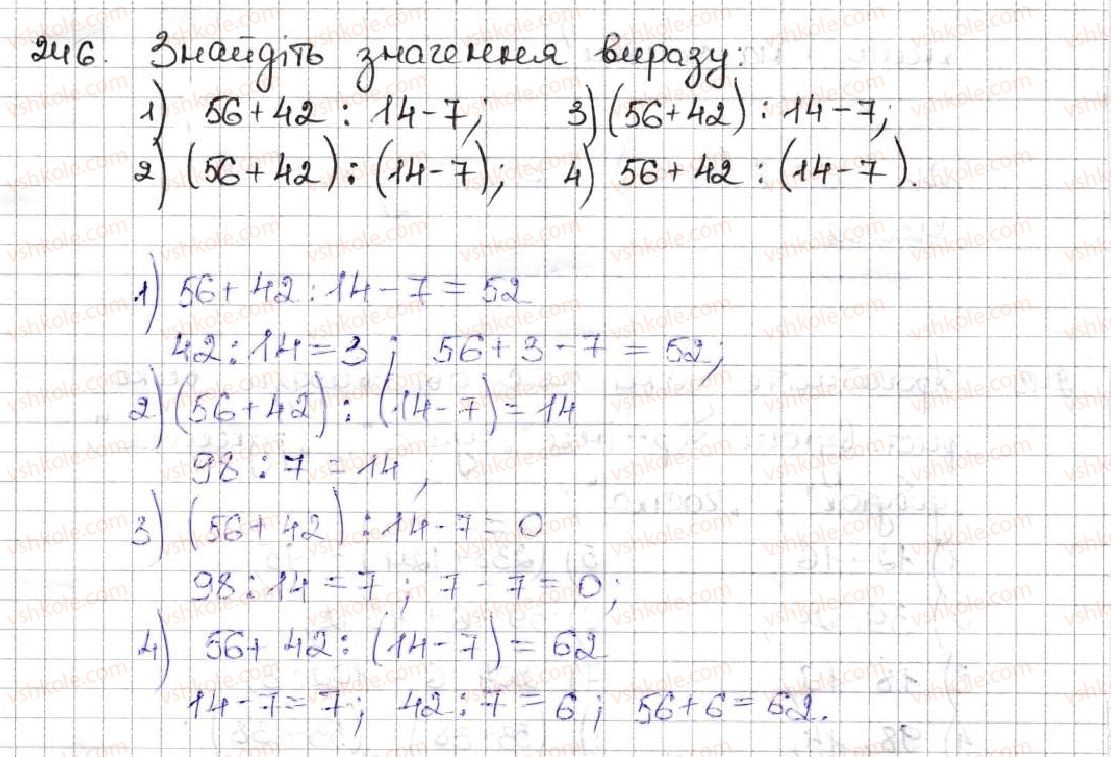 246. Знайдіть значення виразу:
1) 56+42 : 14-7; 3) (56+42) : 14-7;
2) (56+42) : (14-7); 4) 56+42 : (14-7).
1) 56+42 : 14-7=52
42 : 14=3; 56+3-7=52;
2) (56+42) : (14-7)=14
98 : 7=14;
3) (56+42) : 14-7=0
98 : 14=7; 7-7=0;
4) 56+42 : (14-7)=62
14-7=7; 42 : 7=6; 56+6=62.
vshkole.com